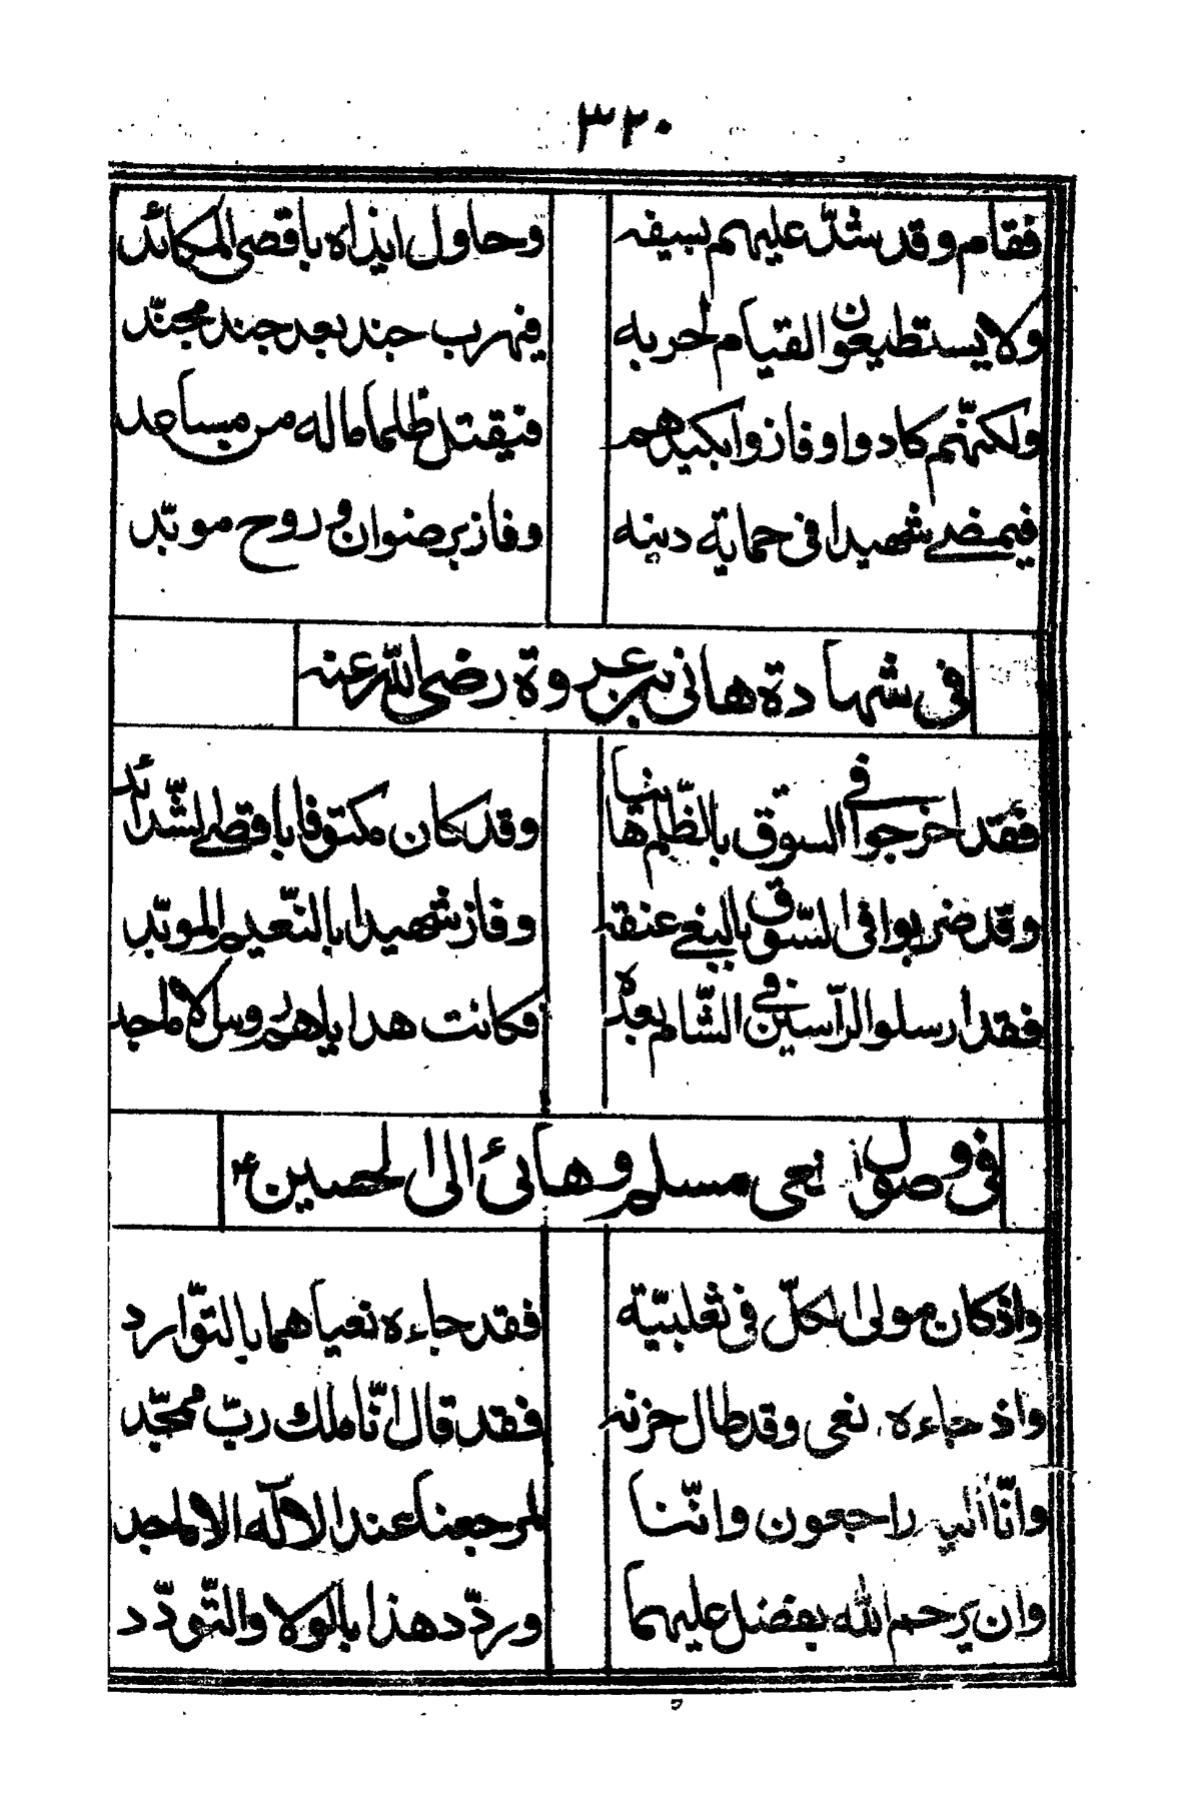 ٣٢٠
فقام وقد شدّ عليهم بسيفه وحاول ايذاه باقصى المكائد
ولا يستطيعون القيام لحربه فيهرب جند بعد جند مجنّد
ولكنّهم كادوا وفازوا بكيدهم فيقتل ظلما ماله من مساعد
فيمضى شهيدا فى حماية دينه وفاز برضوان وروح موبّد
فى شهادة هانى بن عروة رضى اللّه عنه
فقد اخرجوا فى السوق بالظّلم هانيا وقد كان مكتوفا باقصى الشّدائد
وقد ضربوا فى السّوق بالبغى عنقه وفاز شهيدا بالنّعيم الموبّد
فقد ارسلوا الرّأسين فى الشّام بعده فكانت هدايا هم روس الاماجد
فى وصول نعى مسلم وهانئ الى الحسين ؑ
واذ كان مولى الكلّ فى ثعلبيّة فقد جاءه نعيا هما بالتّوارد
واذ جاءه نعى وقد طال حزنه فقد قال انّا ملك ربّ ممجّد
وانّا اليه راجعون وانّنا لمرجعنا عند الاله الاماجد
وان يرحم اللّه بفضل عليهما وردّد هذا بالولا والتّودّد